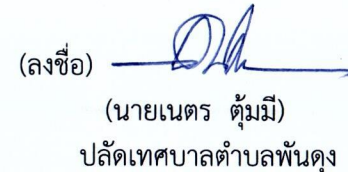 (ลงชื่อ)
(นายเนตร ตุ้มมี)
ปลัดเทศบาลตำบลพันดุง